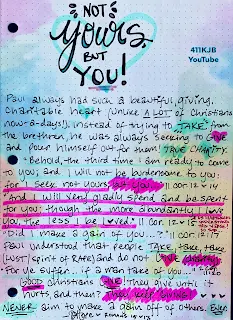 NOT
Yours,
BUT
YOU!
411KJB
YouTube
Paul always had such a beautiful, giving,
Charitable heart (Unlike A LOT of Christians
now-a-days!), instead of trying to TAKE from
the brethren, he was always seeking to GIVE
and pour himself out for them! TRUE CHARITY.
"Behold, the third time I am ready to come
to you; and I will not be burdensome to you:
for I seek not yours, but you..." II Cor. 12 v 14
"And I will very gladly spend and be spent
for you; though the more abundantly I love
you, the less I be loved." II Cor. 12 v 15
"Did I make a gain of you..?" II Cor. 12 v
Paul understood that people TAKE, TAKE, TAKE
(LUST/ spirit of RAPE) and do not
"For ye suffer... if a man take of you..."
GOOD Christians GIVE they give until it
hurts, and then they keep giving!
NEVER aim to make a gain off of others. EVER.